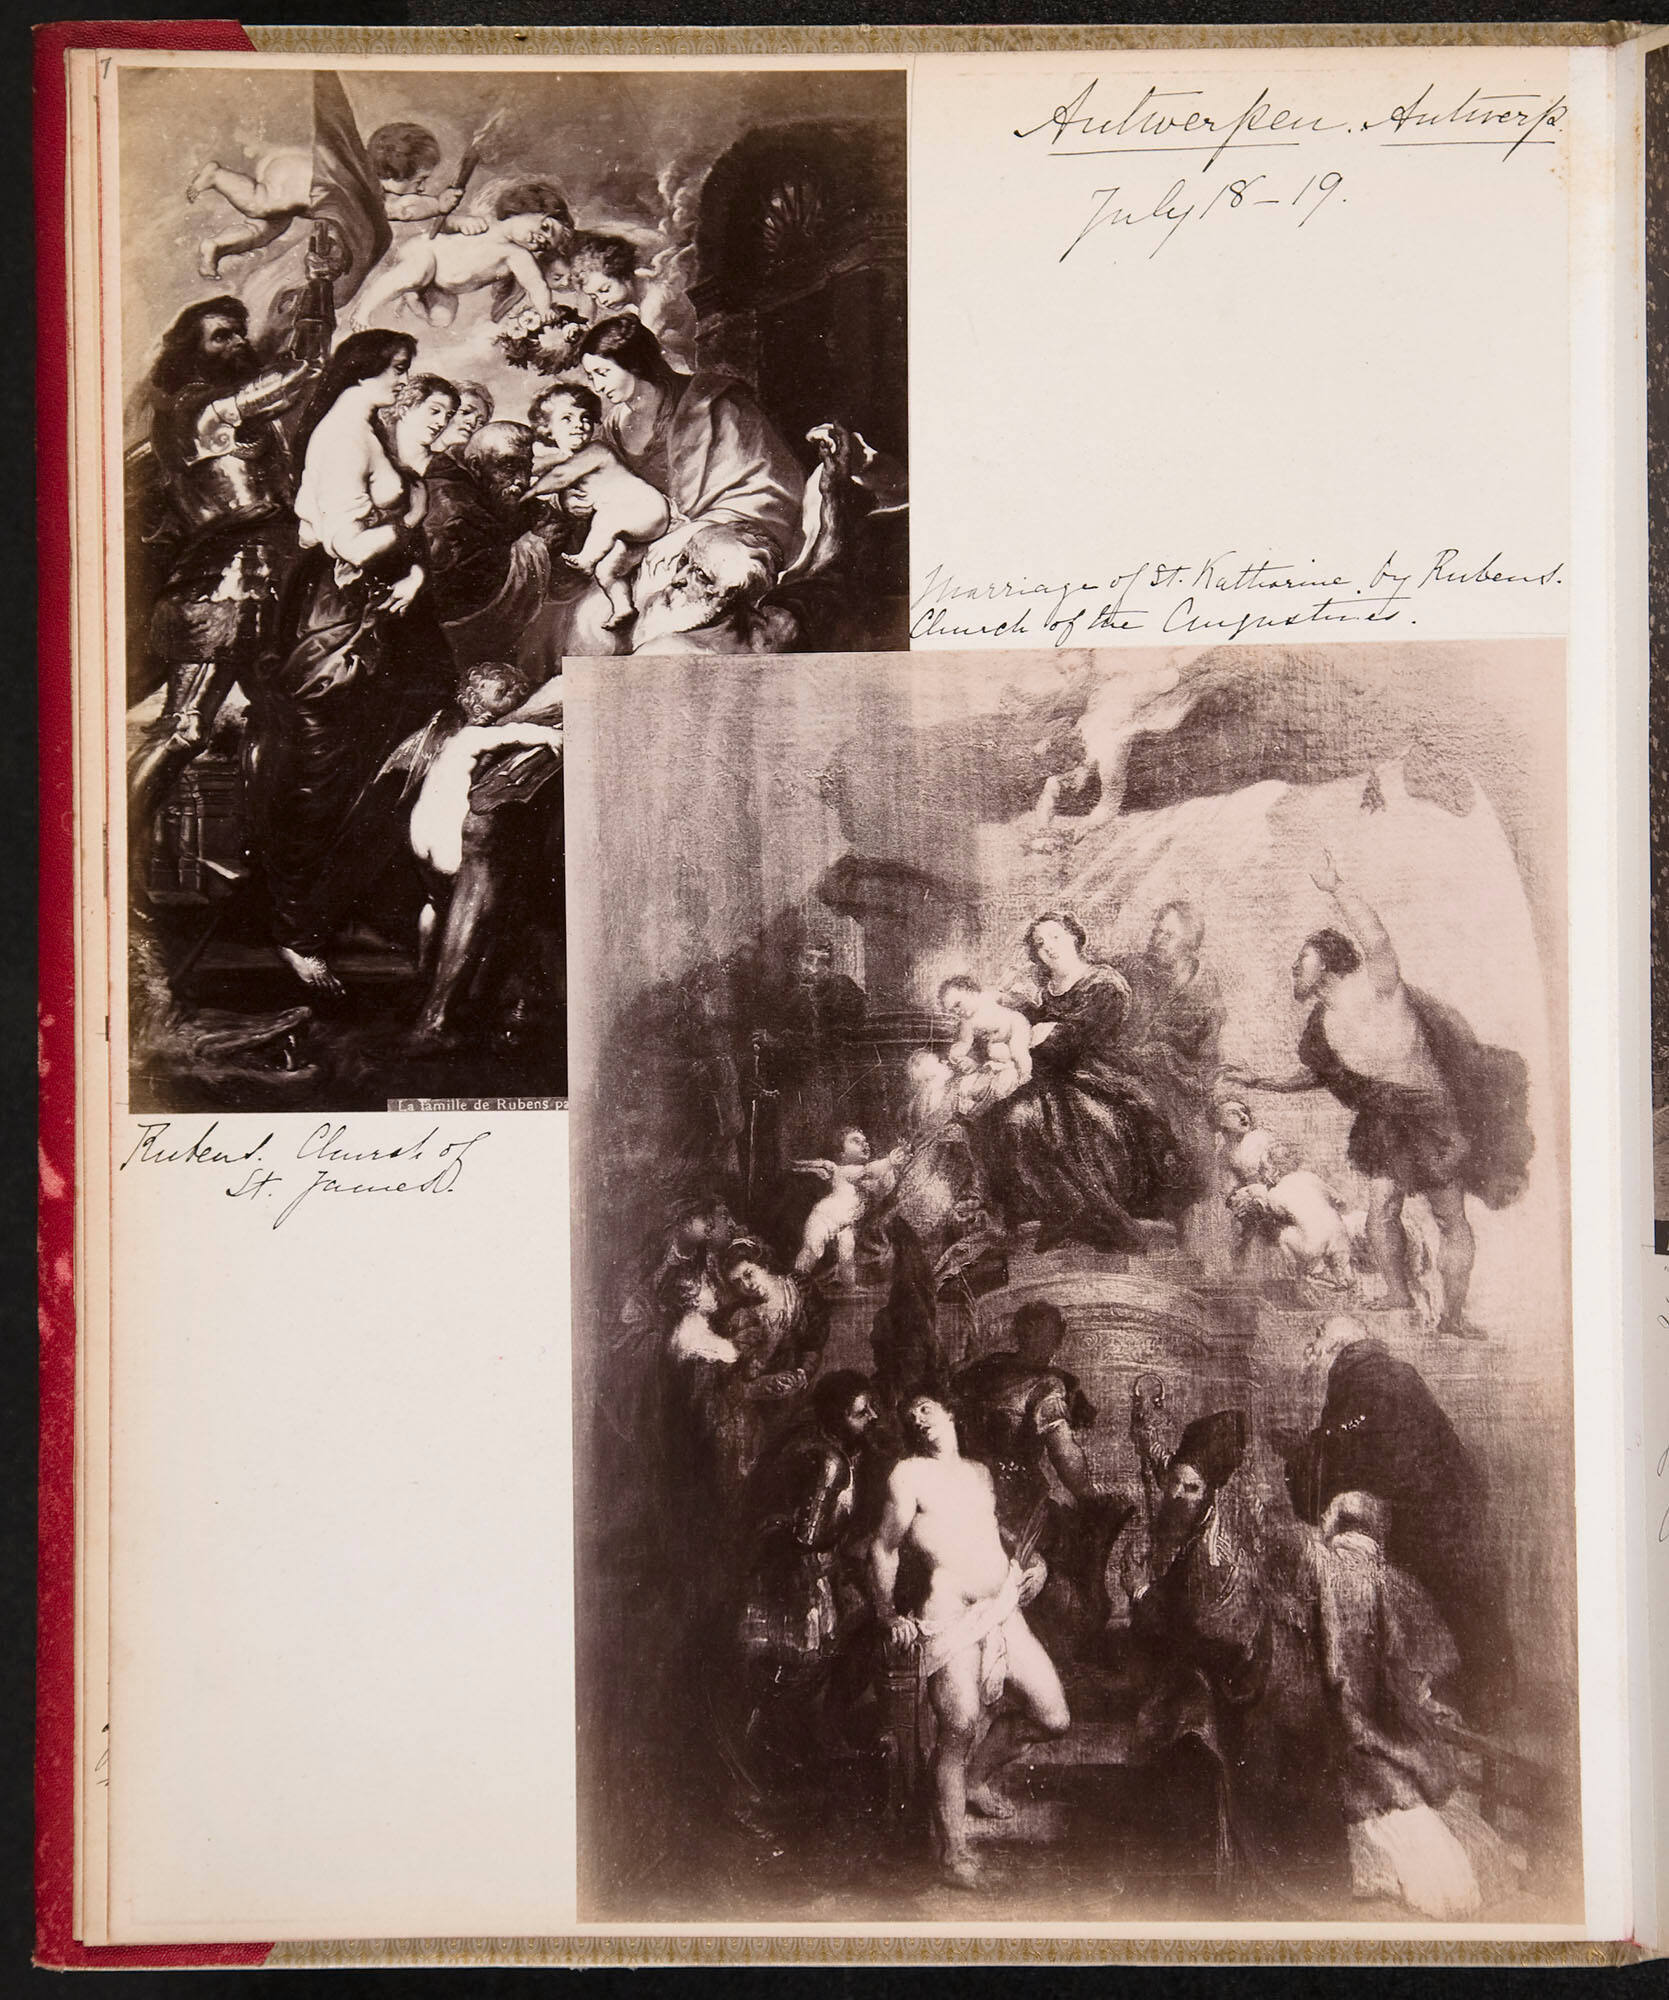 7
Antwerpen. Antwerp.
July 18-19.
Marriage of St. Katharine, by Rubens.
Church of the Augustines.
La famille de Rubens pa
Rubens. Church of
St. James.